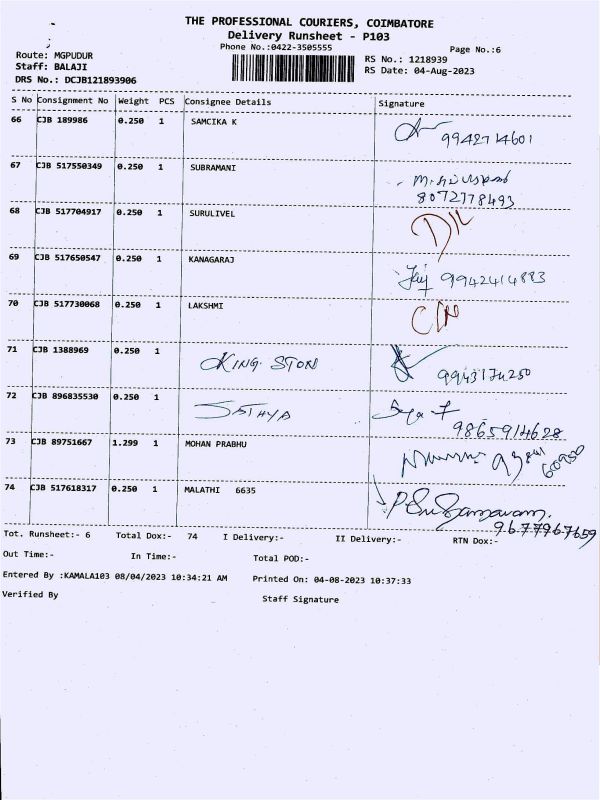 THE PROFESSIONAL COURIERS, COIMBATORE
Delivery Runsheet - P103
Phone No.:0422-3505555
Page No.:6
Route: MGPUDUR
Staff: BALAJI
DRS No.: DCJB121893906
RS No.: 1218939
RS Date: 04-Aug-2023
S No Consignment No Weight PCS Consignee Details Signature
66 CJB 189986 0.250 1 SAMCIKA K
9942714601
67 CJB 517550349 0.250 1 SUBRAMANI
8072778493
68 CJB 517704917 0.250 1 SURULIVEL
69 CJB 517650547 0.250 1 KANAGARAJ
9942414883
70 CJB 517730068 0.250 1 LAKSHMI
71 CJB 1388969 0.250 1 KING STON
9943174250
72 CJB 896835530 0.250 1 SATHYA
9865914628
73 CJB 89751667 1.299 1 MOHAN PRABHU
74 CJB 517618317 0.250 1 MALATHI 6635
9677967659
Tot. Runsheet:- 6 Total Dox:- 74 I Delivery:- II Delivery:- RTN Dox:-
Out Time:- In Time:- Total POD:-
Entered By :KAMALA103 08/04/2023 10:34:21 AM Printed On: 04-08-2023 10:37:33
Verified By Staff Signature